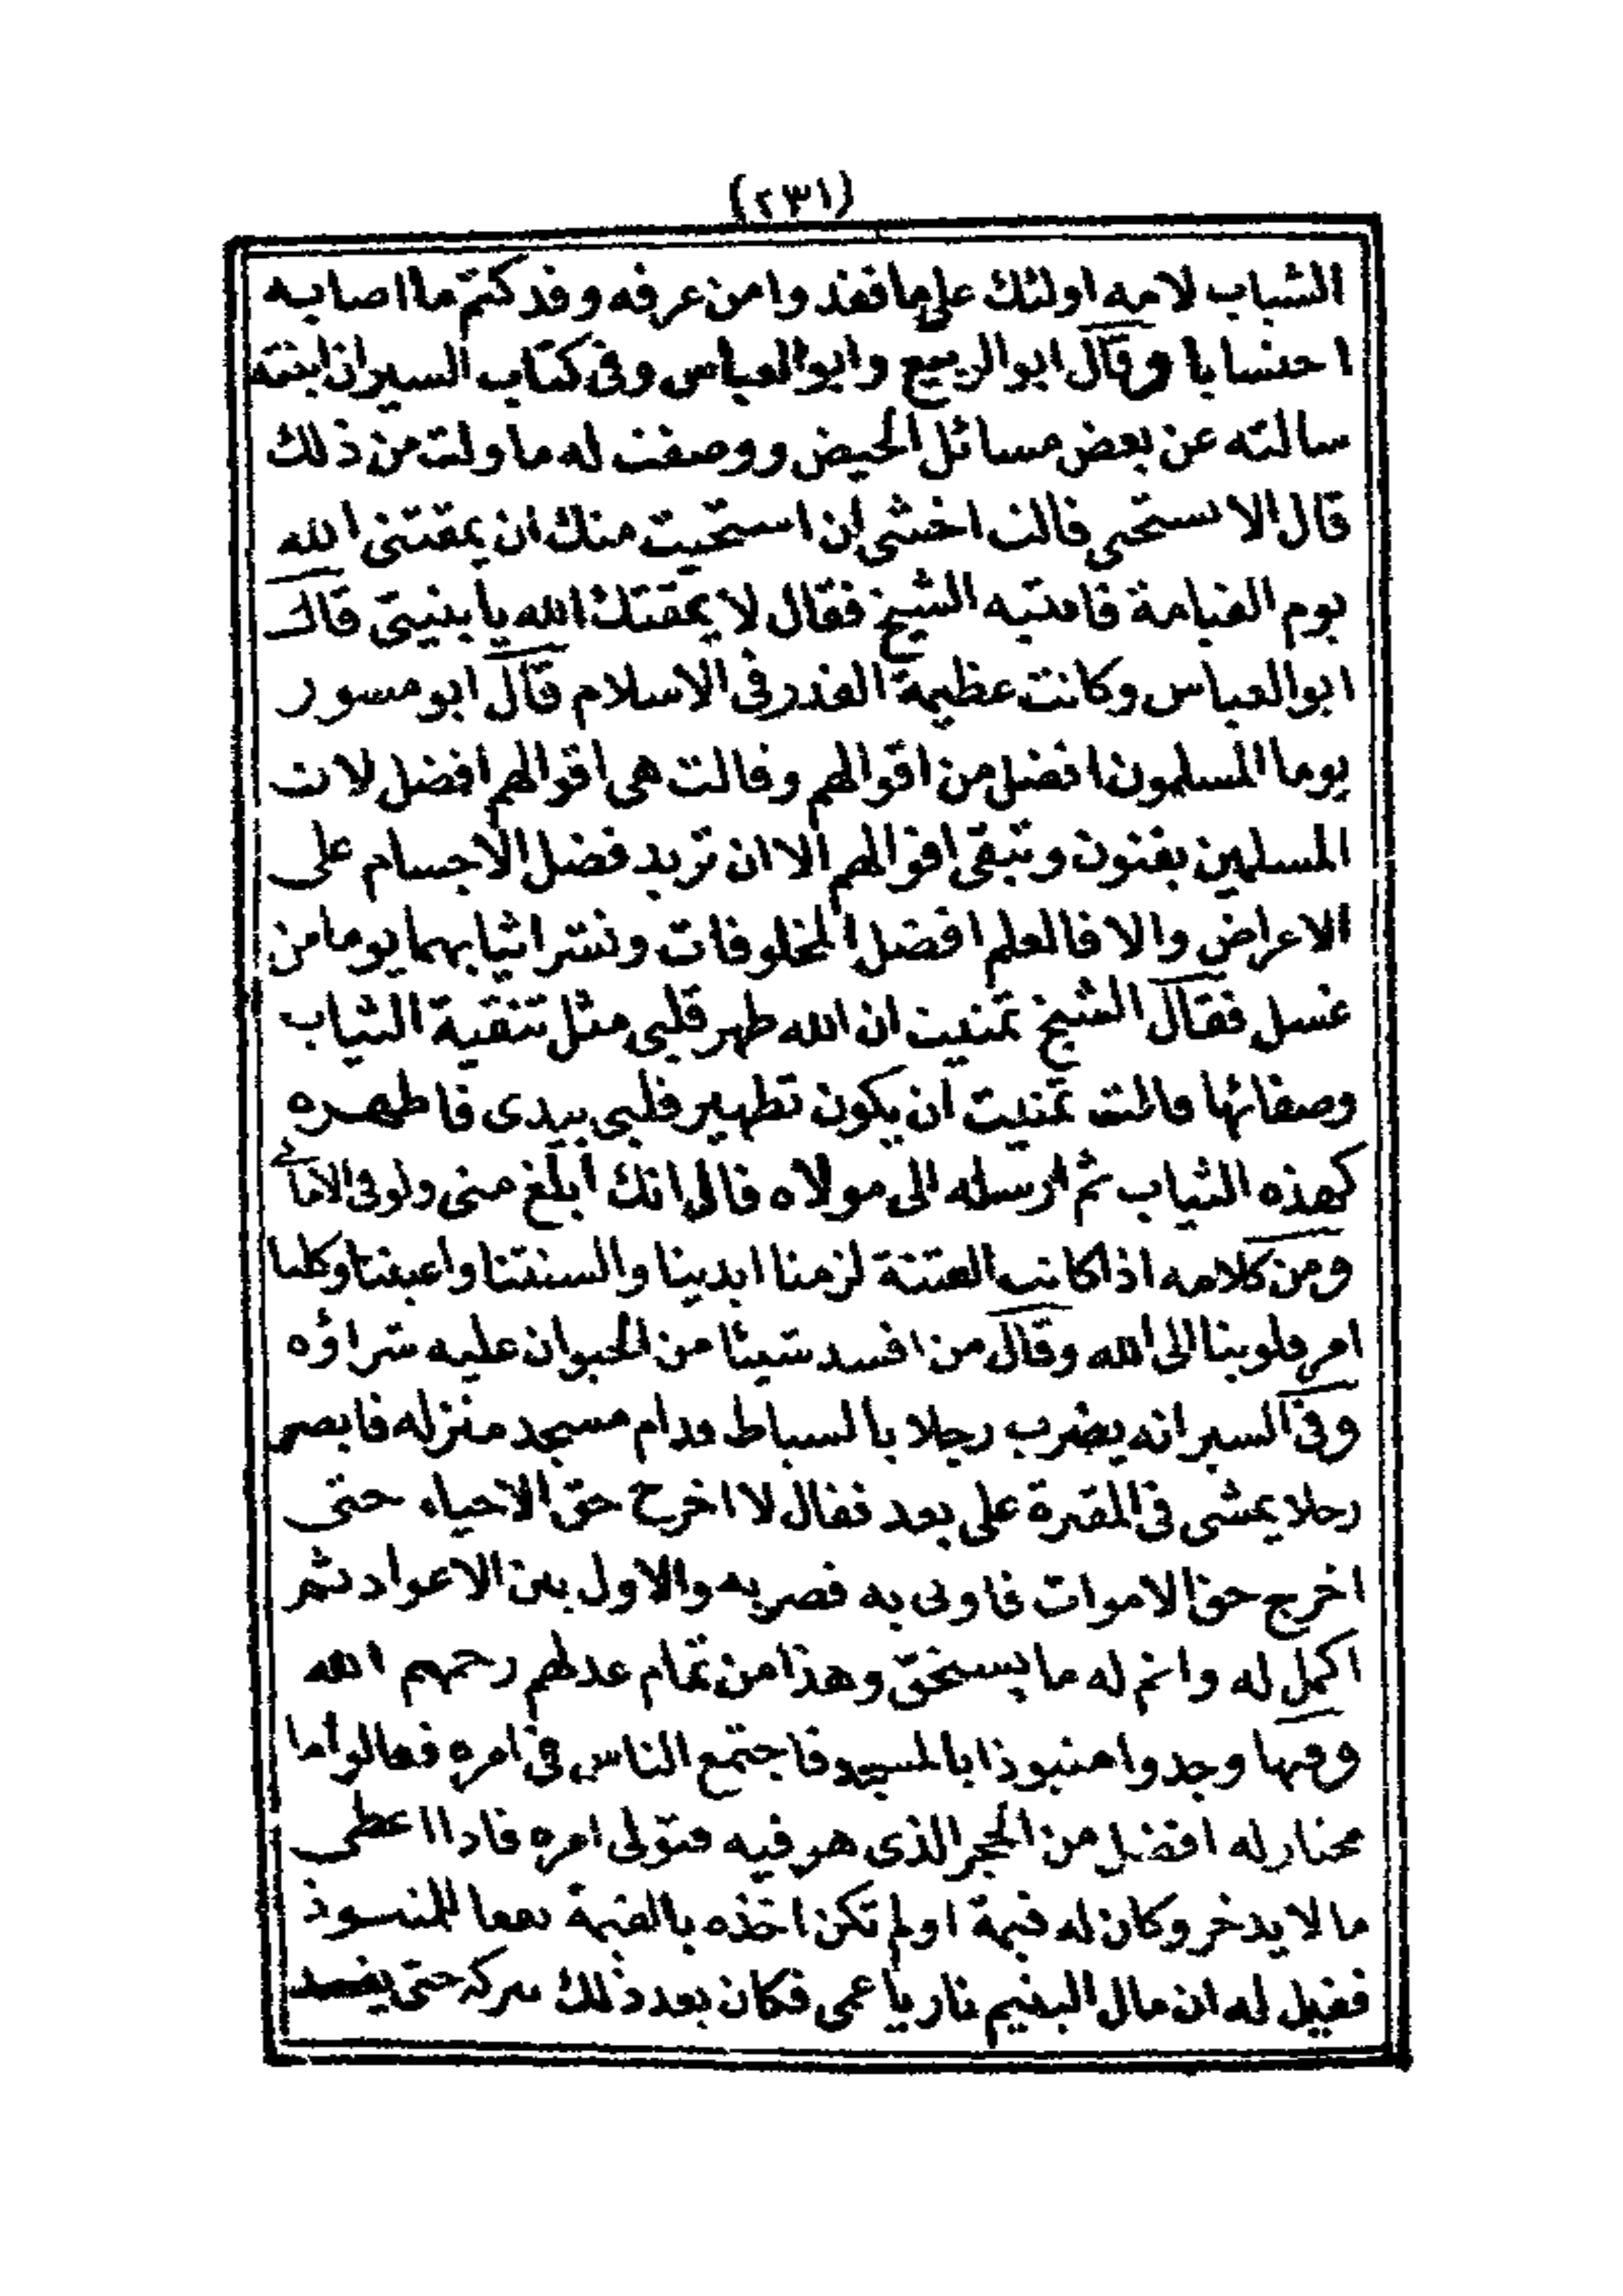 (٢٣١)
الشباب لامه اولئك على ما فقدوا من عرفه وقد كتم ما اصابه
احتسابا وقال ابو الربيع وابو العباس وفى كتاب السير ان ابنته
سالته عن بعض مسائل الحيض ووصفت له ما ولت من ذلك
قال الا تستحى قالت اخشى ان استحيت منك ان يمقتنى الله
يوم القيامة فامتبه الشيخ فقال لا يمقتك الله يا بنيتى قال
ابو العباس وكانت عظيمة القدر فى الاسلام قال ابو مسور
يوما المسلمون افضل من اقوالهم وقالت هى اقوالهم افضل لان
المسلمين يفنون وتبقى اقوالهم الا ان تريد فضل الاجسام على
الاعراض والا فالعلم افضل المخلوقات ونشرا ثيابهما يوما من
غسل فقال الشيخ تمنيت ان الله طهر قلبى مثل تنقية الثياب
وصفائها قالت تمنيت ان يكون تطهير قلبى بيدى فاطهره
كهذه الثياب ثم ارسله الى مولاه قال انك ابلغ منى ولو فى الامانى
ومن كلامه اذا كانت الفتنة لزمنا ايدينا والسنتنا واعيننا وكلنا
امر قلوبنا الى الله وقال من افسد شيئا من الحيوان عليه شراؤه
وفى السير انه يضرب رجلا بالسياط قدام مسجد منزله فابصر
رجلا يمشى فى المقبرة على بعد فقال لا اخرج حق الاحياء حتى
اخرج حق الاموات فاوتى به فضربه والاول بين الاعواد ثم
اكمل له واتم له ما يستحق وهذا من تمام عدلهم رحمهم الله
وفيها وجدوا منبوذا بالمسجد فاجتمع الناس فى امره فقالوا ما
مختار له افضل من الحجر الذى هو فيه فتولى امره فاذا اعطى
ما لا يدخر وكان له قيمة او لم تكن اخذه بالقيمة نفعا للمنبوذ
فقيل له ان مال اليتيم نار يا عمى فكان بعد ذلك يتركه حتى يفسد